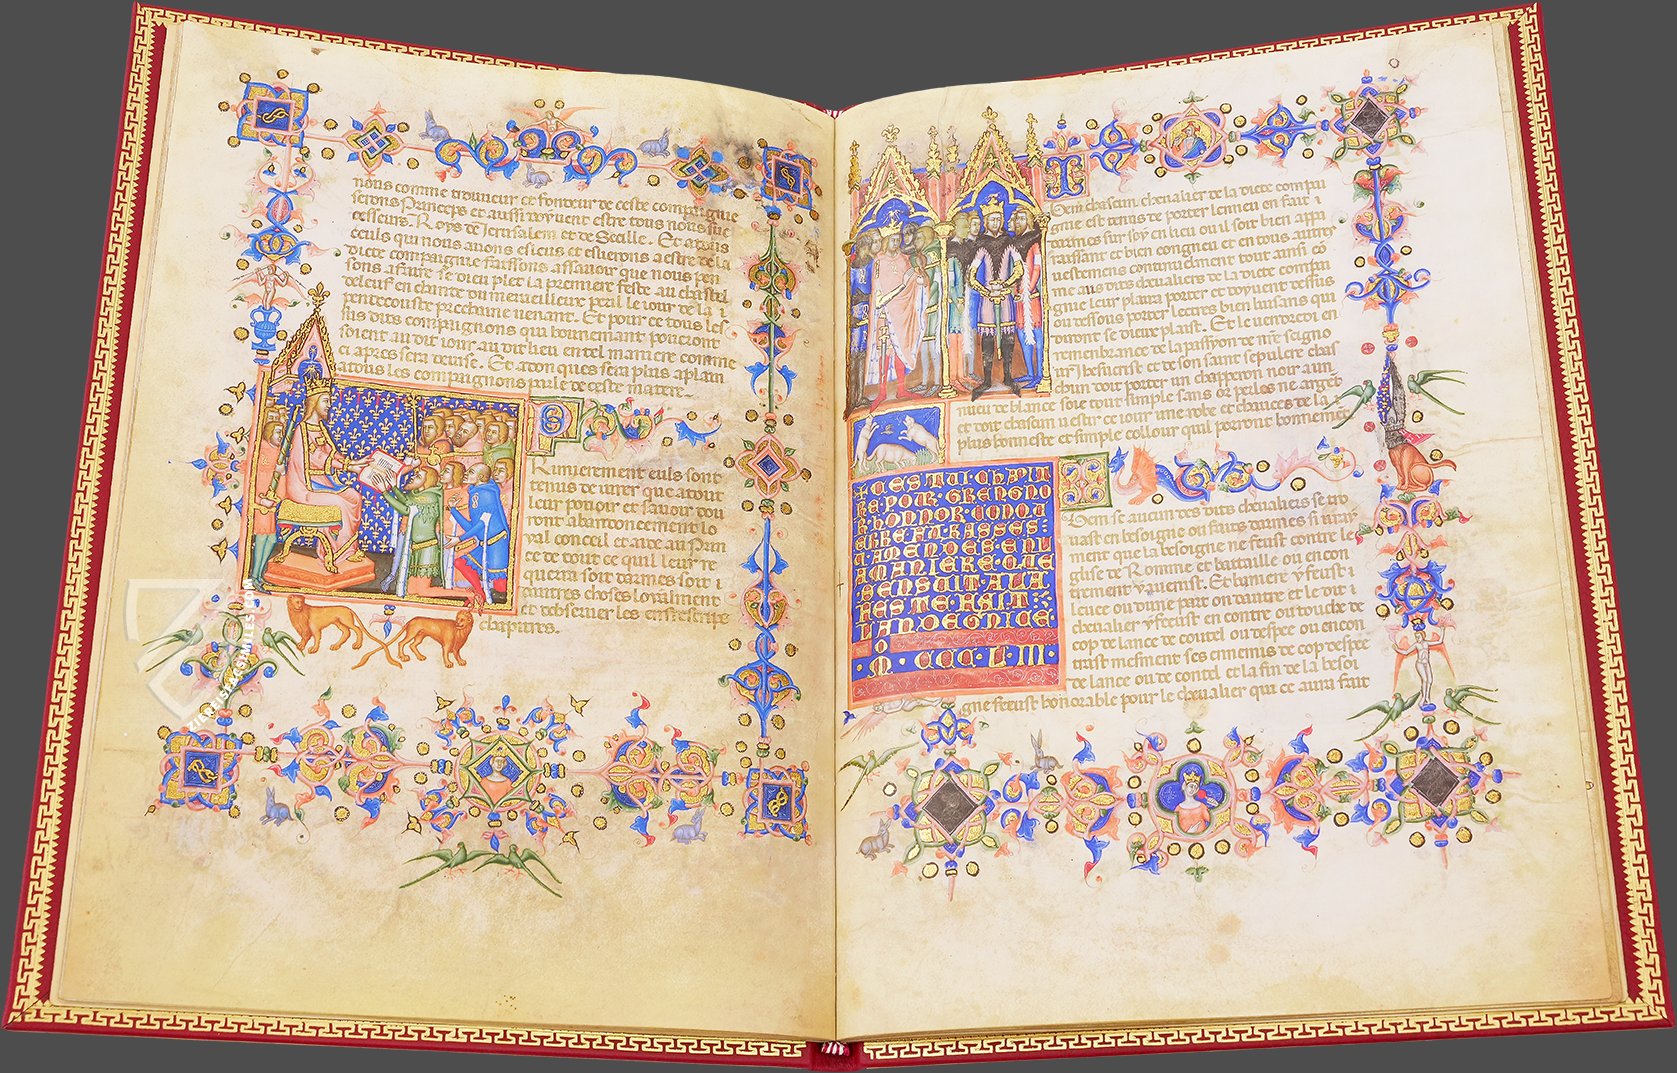 nous comme trouveur et fondeur de ceste compaignie
serons Princeps et aussi doyuent estre tous nous suc
cesseurs Roys de Jerusalem et de Secille. Et atous
ceuls qui nous auons esleus et eslirons a estre de la
dicte compaignie faissons assauoir que nous pen
sons a faire se dieu plet la premiere feste au chastel
de leuf en chante du merueilleux peril le iour de la
pentecouste prochaine uenant. Et pour ce tous les
sus dits compaignons qui bonnemant pouront
soient au dit iour au dit lieu en tel maniere comme
ci apres sera deuise. Et adonques sera plus aplain
atous les compaignons parle de ceste matere.
P
Rumierement euls sont
tenus de iurer que atout
leur pouoir et sauoir dou
ront abandonnement lo
yal conseil et aide au Prin
ce de tout ce quil leur re
querra soit darmes soit
autres choses loyalment
et dobseruer les enfrescripz
chapitres.
ZIEREIS FACSIMILES.COM
I
Item chascun cheualier de la dicte compai
gnie est tenus de porter le neu en fait
darmes sur soy en lieu ou il soit bien appa
raissant et bien congneu et en tous autres
uestemens continuelment tout ainsi co
me aus dits cheualiers de la dicte compai
gnie leur plaira porter et doyuent dessus
ou dessous porter lectres bien luisans qui
diront se dieux plaist. Et le uendredi en
remembrance de la passyon de nre seigno
ur Jhesucrist et de son saint sepulcre chas
cun doit porter un chapperon noir aun
neu de blance soie tout simple sans or perles ne argent
et doit chascun uestir ce iour une robe et chauces de la
plus honneste et simple collour quil porront bonnement
CESTUI CHAPIT
RE POUR GRENGNO
R HONNOR CONQU
ERRE AM RASSES
U AMENDES EN L
A MANIERE QUE
SENSUIT A LA
FESTE FAIT
LAN DE GRACE
M CCC LIII
I
Item se aucun des dits cheualiers se tro
uast en besoigne ou faits darmes si uray
ment que la besoigne ne feust contre le
glise de Romme et bataille ou en con
trement y auenist. Et baniere y feust
leuee ou dune part ou dautre et le dit
cheualier y feust en contre ou touche de
cop de lance de coutel ou despee ou encon
trast mesment ses ennemis de cop despee
de lance ou de coutel et la fin de la besoi
gne feust honorable pour le cheualier qui ce aura fait